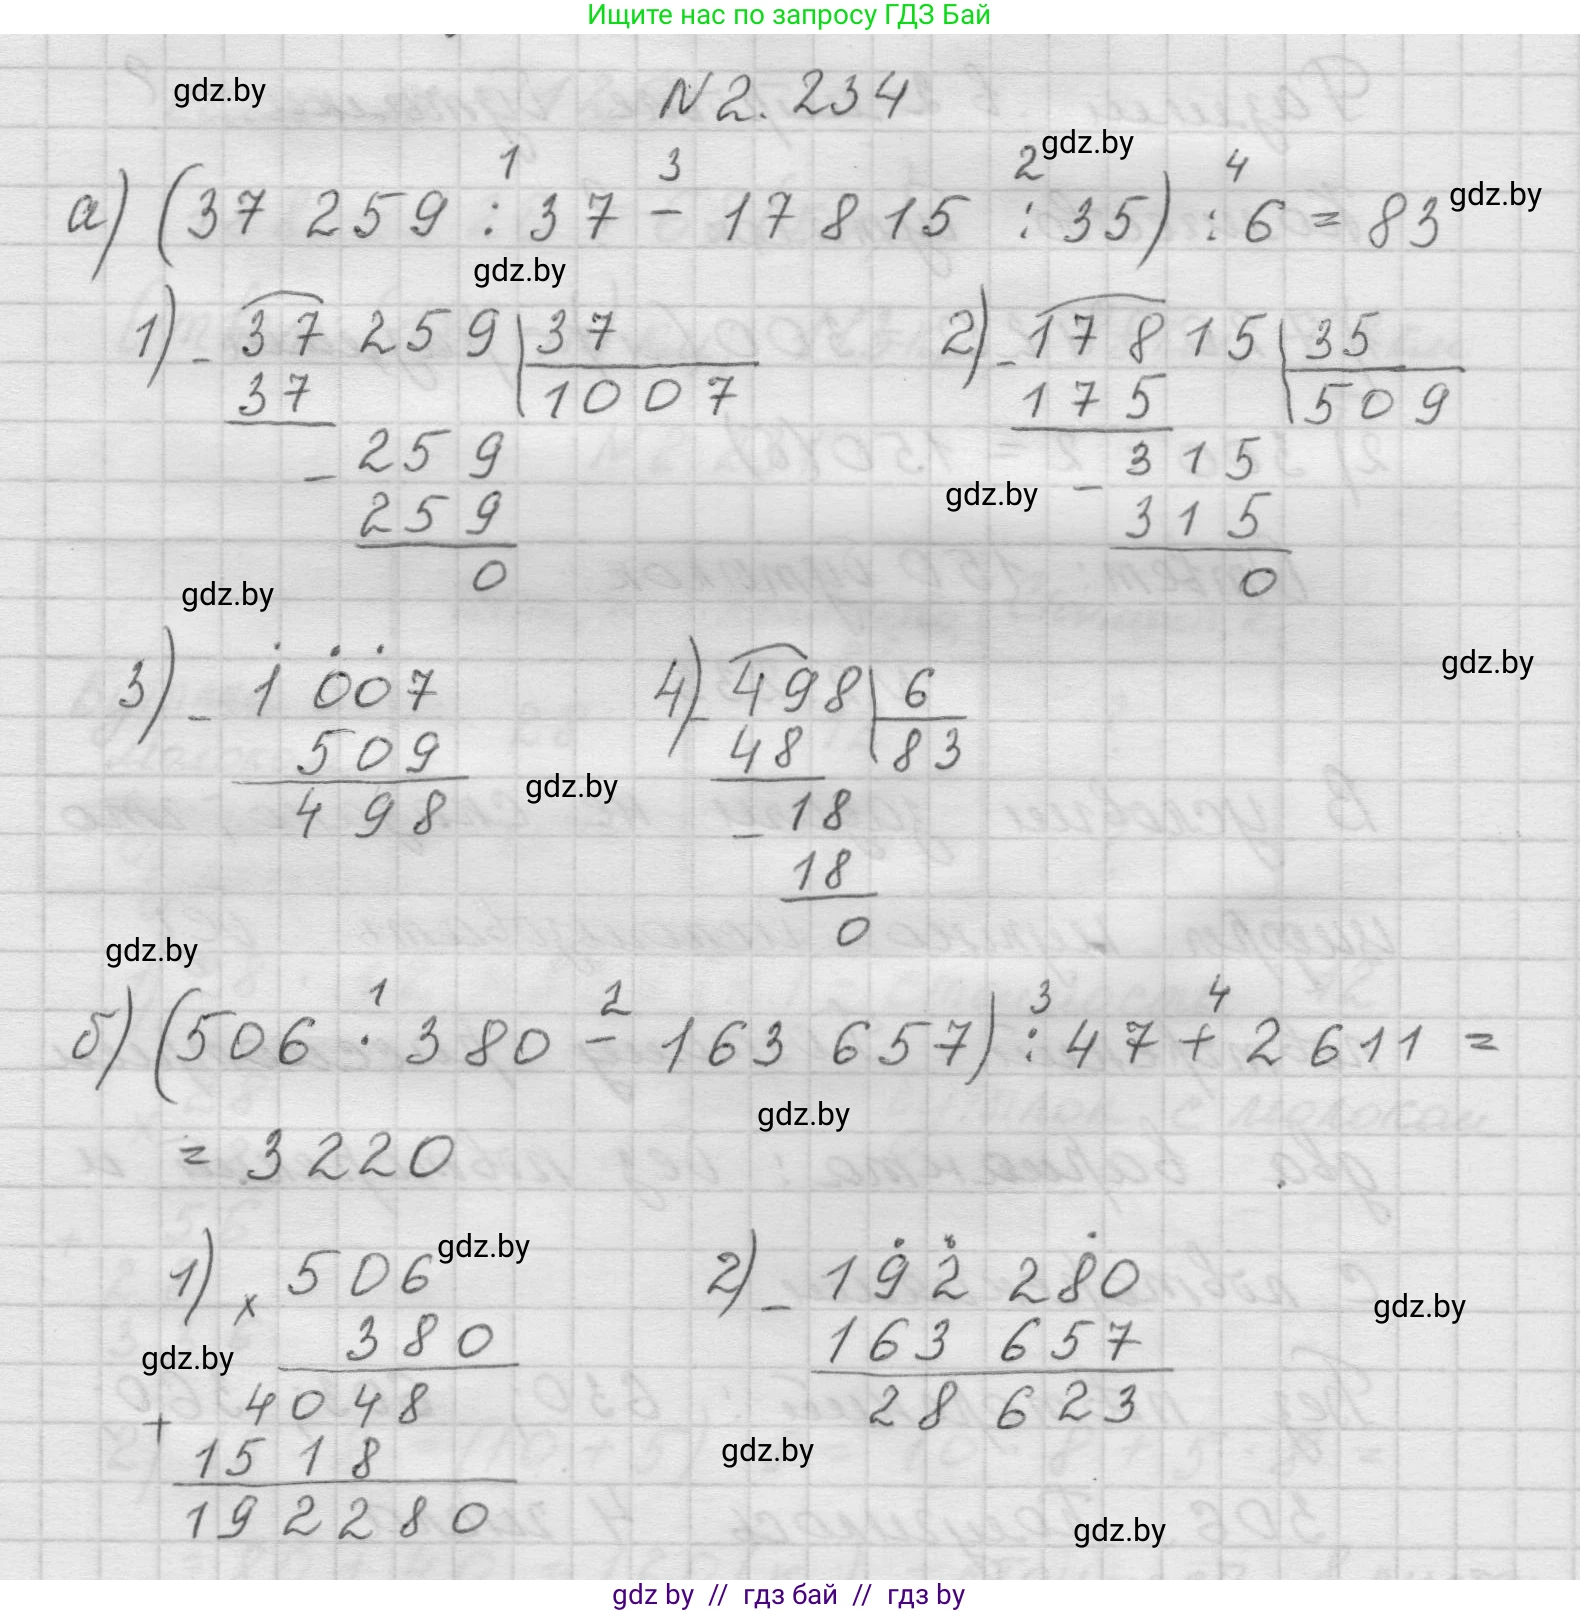 Ищите нас по запросу ГДЗ Бай
gdz.by
N 2. 234
gdz.by
1 3 2 4
а) (37 259 : 37 - 17 815 : 35) : 6 = 83
gdz.by
gdz.by
1) - 37 259 | 37
37 | 1007
- 259
259
0
2) - 178 15 | 35
175 | 509
- 315
315
0
gdz.by
gdz.by
gdz.by
3) - 1 007
509
498
4) - 498 | 6
48 | 83
- 18
18
0
gdz.by
gdz.by
1 2 3 4
б) (506 · 380 - 163 657) : 47 + 2 611 =
gdz.by
= 3220
1) x 506
380
+ 4048
1518
192280
gdz.by
gdz.by
2) - 192 280
163 657
28 623
gdz.by
gdz.by
gdz.by
gdz by // гдз бай // гдз by